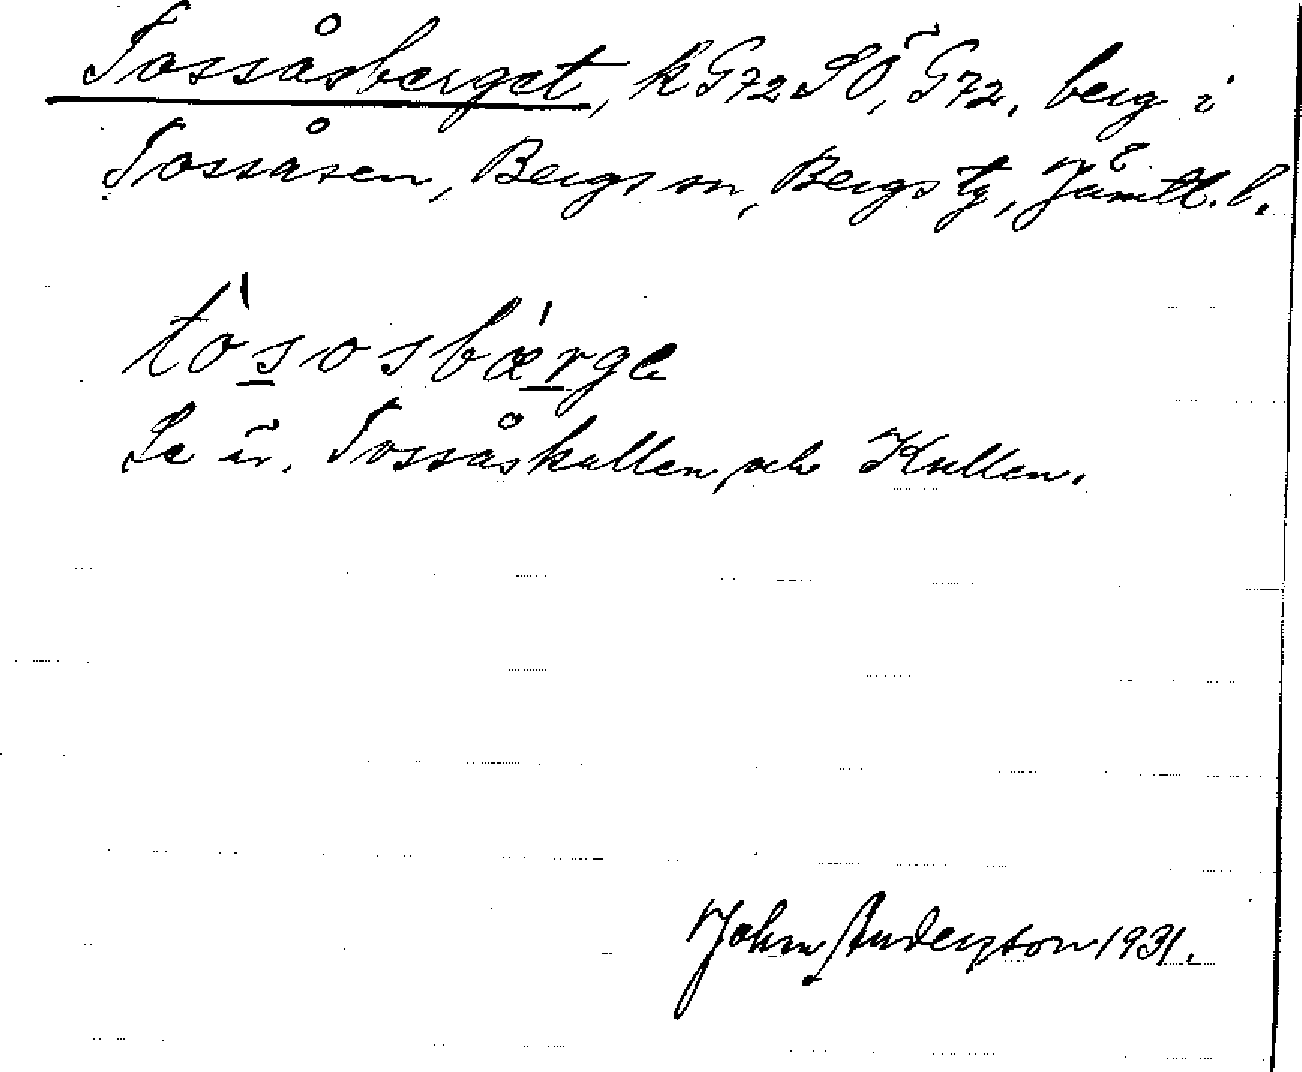 Tossåsberget, k G72 SÖ, G72, berg i
Tossåsen, Bergs sn, Bergs tg, Jämtl. l.
tòsosbærge
Se är. Tossåskullen, och Kullen.
John Anderzson 1931.